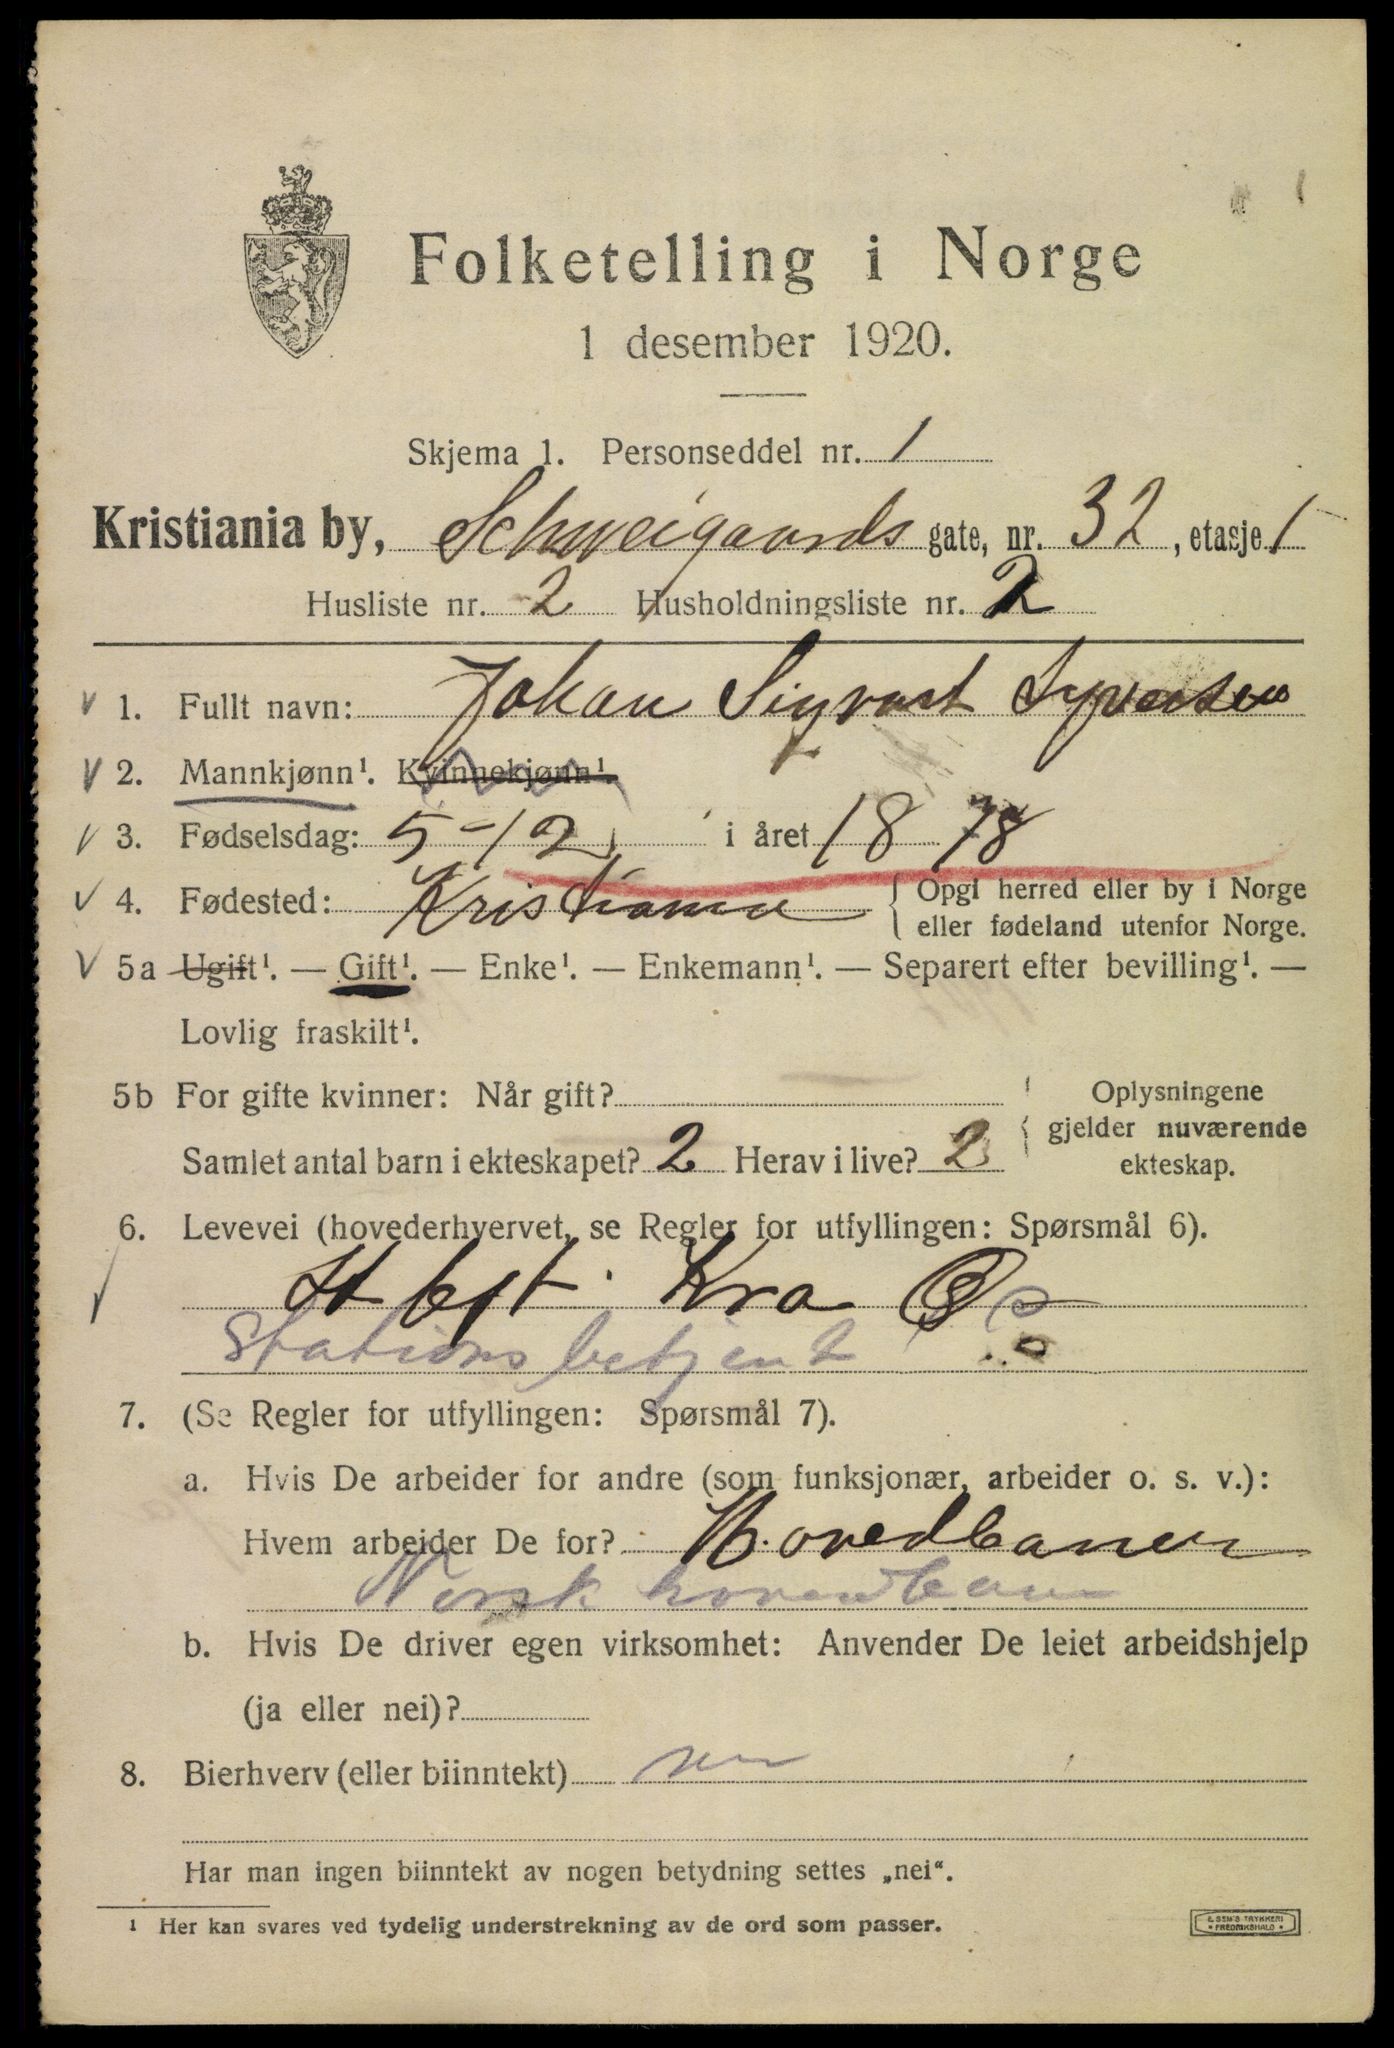 Folketelling i Norge
1 desember 1920.
Skjema 1. Personseddel nr. 1
Kristiania by, Schweigaards gate, nr. 32, etasje 1
Husliste nr. 2 Husholdningsliste nr. 2
1. Fullt navn: Johan Sigvart Syversen
2. Mannkjønn¹. Kvinnekjønn¹.
3. Fødselsdag: 5-12 i året 1878
4. Fødested: Kristiania { Opgi herred eller by i Norge
eller fødeland utenfor Norge.
5a Ugift¹. — Gift¹. — Enke¹. — Enkemann¹. — Separert efter bevilling¹. —
Lovlig fraskilt¹.
5b For gifte kvinner: Når gift?
Samlet antal barn i ekteskapet? 2 Herav i live? 2
Oplysningene
gjelder nuværende
ekteskap.
6. Levevei (hovederhvervet, se Regler for utfyllingen: Spørsmål 6).
St bst. Kra Ø
Stationsbetjent
7. (Se Regler for utfyllingen: Spørsmål 7).
a. Hvis De arbeider for andre (som funksjonær, arbeider o. s. v.):
Hvem arbeider De for? Hovedbanen
Norsk hovedbane
b. Hvis De driver egen virksomhet: Anvender De leiet arbeidshjelp
(ja eller nei)?
8. Bierhverv (eller biinntekt) nei
Har man ingen biinntekt av nogen betydning settes „nei“.
¹ Her kan svares ved tydelig understrekning av de ord som passer.
E. SEM'S TRYKKERI
* FREDRIKSHALD *